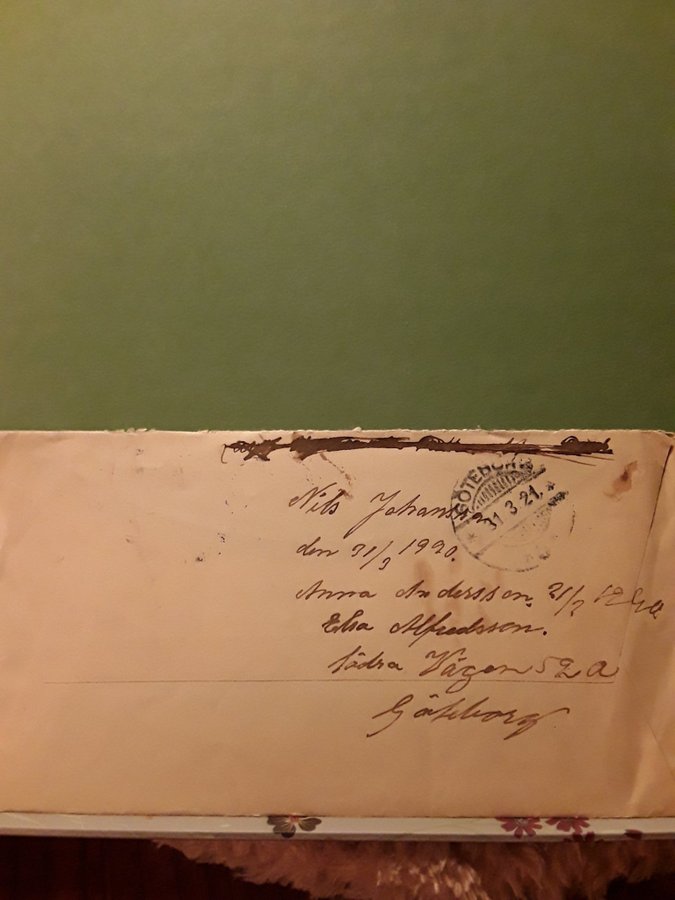 GÖTEBORG
31.3.21.
Nils Johansson
den 31/3 1920.
Anna Andersson. 21/2
Elsa Alfredsson.
Södra Vägen 52 a
Göteborg